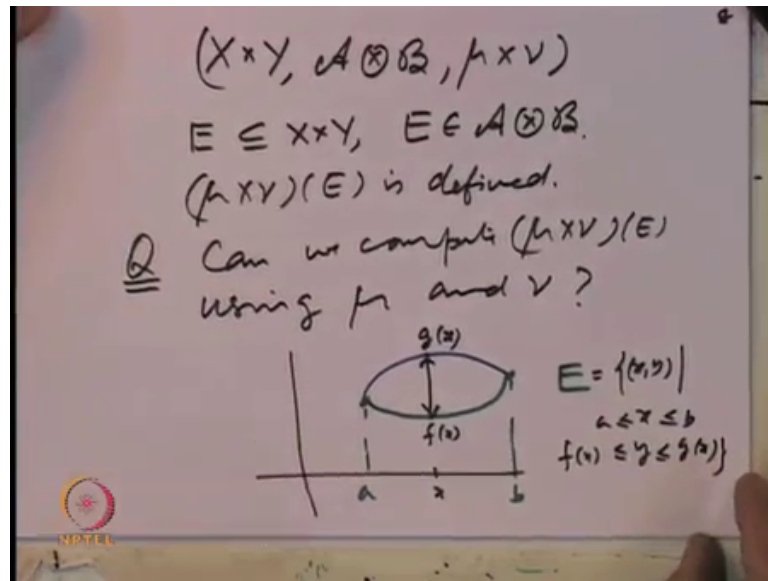 8
(X×Y, A⊗B, μ×ν)
E ⊆ X×Y, E ∈ A⊗B.
(μ×ν)(E) is defined.
Q Can we compute (μ×ν)(E)
using μ and ν?
g(x)
f(x)
a x b
E = {(x,y) |
a ≤ x ≤ b
f(x) ≤ y ≤ g(x)}
NPTEL